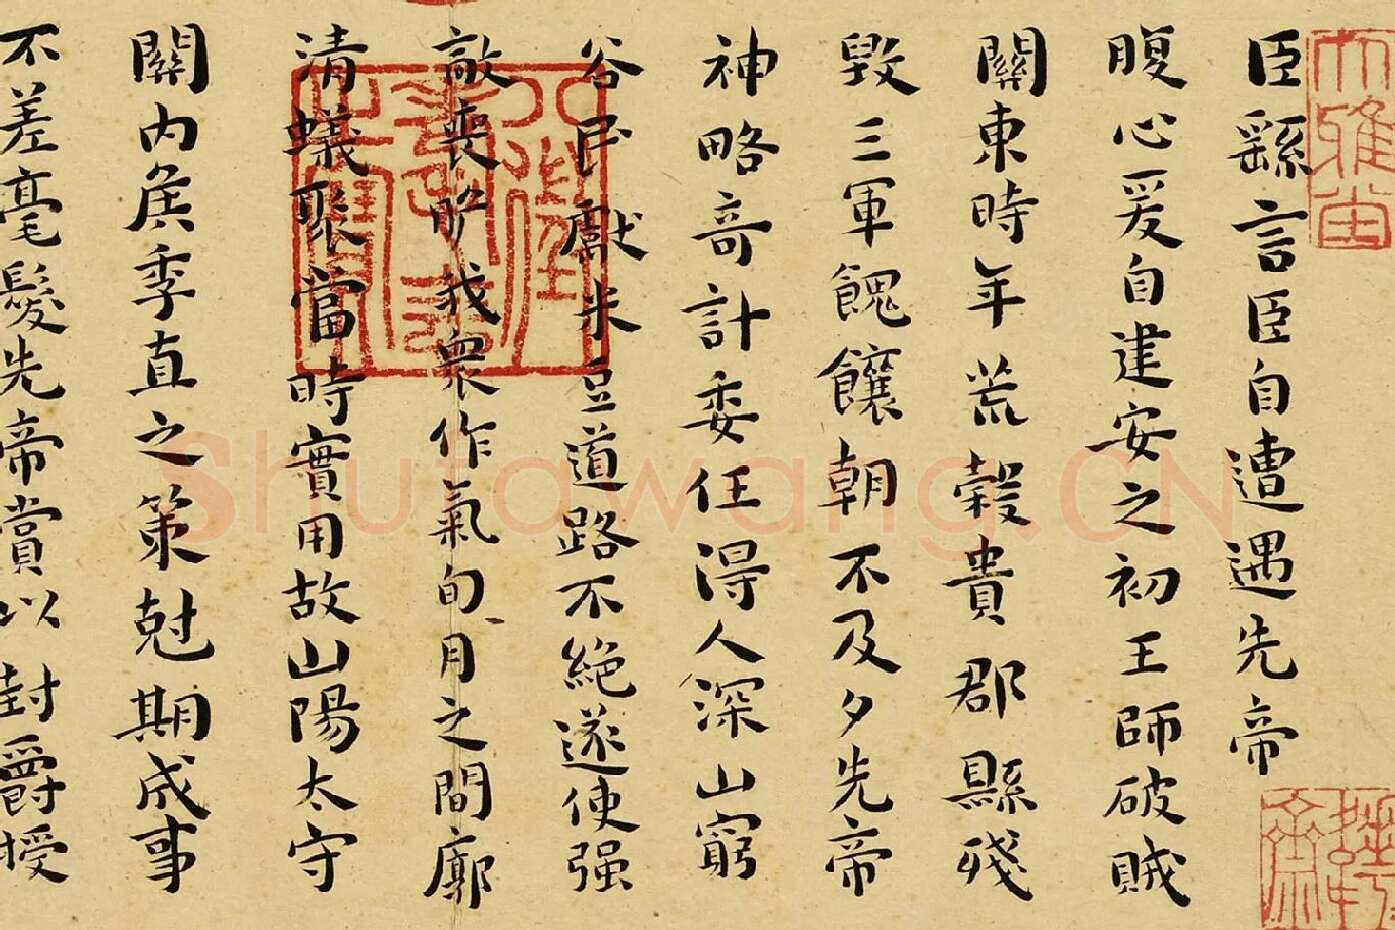 臣繇言臣自遭遇先帝
腹心爰自建安之初王師破賊
關東時年荒穀貴郡縣殘
毀三軍餽饟朝不及夕先帝
神略奇計委任得人深山窮
谷民獻米豆道路不絕遂使强
敵喪膽我衆作氣旬月之間廓
清蟻聚當時實用故山陽太守
關內侯季直之策尅期成事
不差毫髮先帝賞以封爵授
Shufawang.CN